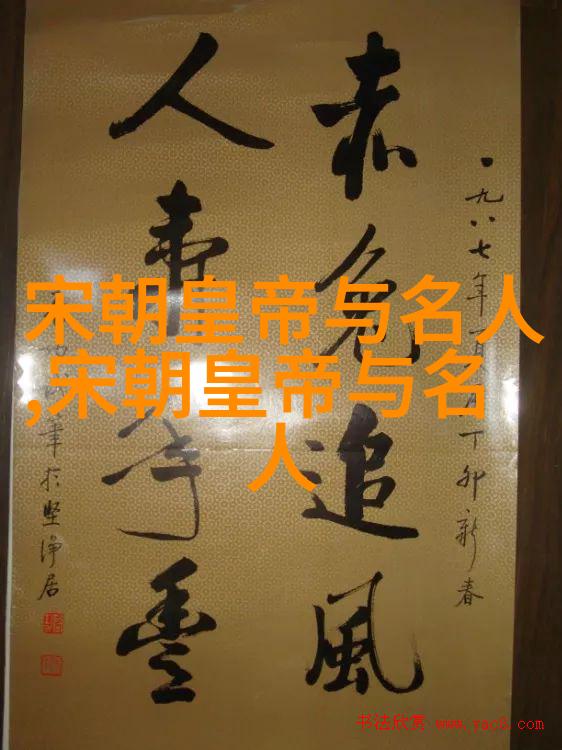 宋朝皇帝与名人
,宋朝皇帝与名
人
一九八七年
丁卯新春
赤兔追風
人事年豊
筆於堅浄居
书法欣赏 www.yac8.com